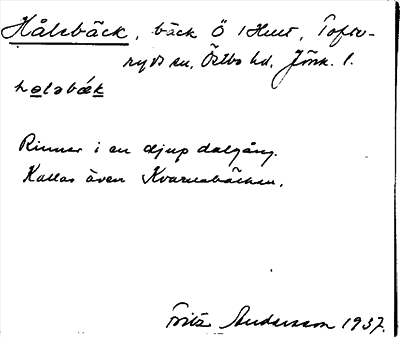 Hålsbäck, bäck Ö 1 Hult, Tofte-
ryds sn, Östbo hd, Jönk. l.
holsbäk
Rinner i en djup dalgång.
Kallas även Kvarnabäcken.
Fritz Andersson 1937.